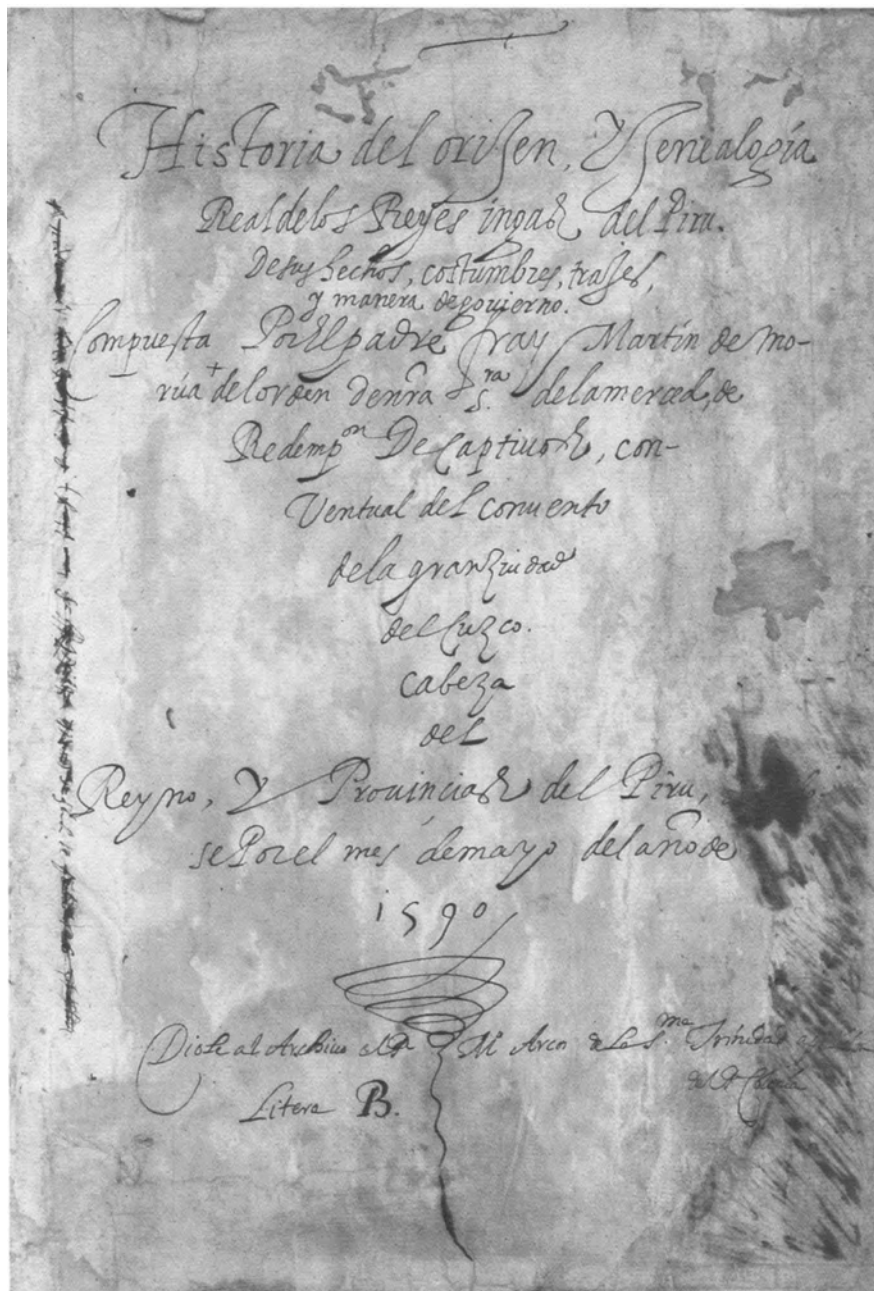 Historia del origen, y genealogía
Real de los Reyes ingas del Piru.
De sus hechos, costumbres, trajes,
y manera de gouierno.
Compuesta Por El padre fray Martín de Mo-
rúa del orden de nra s.ra de la merced, de
Redemp.on De Captiuos, con-
Ventual del conuento
de la gran ziudad
del Cuzco.
Cabeza
del
Reyno, Y Prouincias del Piru,
se Por el mes de mayo del año de
1590
Diose al Archiuo el Pe Mo Arcos de la S.ma Trinidad
del Pe
Litera B.